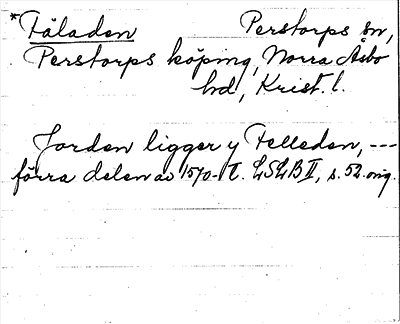 *Fäladen Perstorps sn,
Perstorps köping, Norra Åsbo
hd, Krist. l.
Jorden ligger y Felleden, ---
förra delen av 1570-t. LSLB II, s. 52. orig.